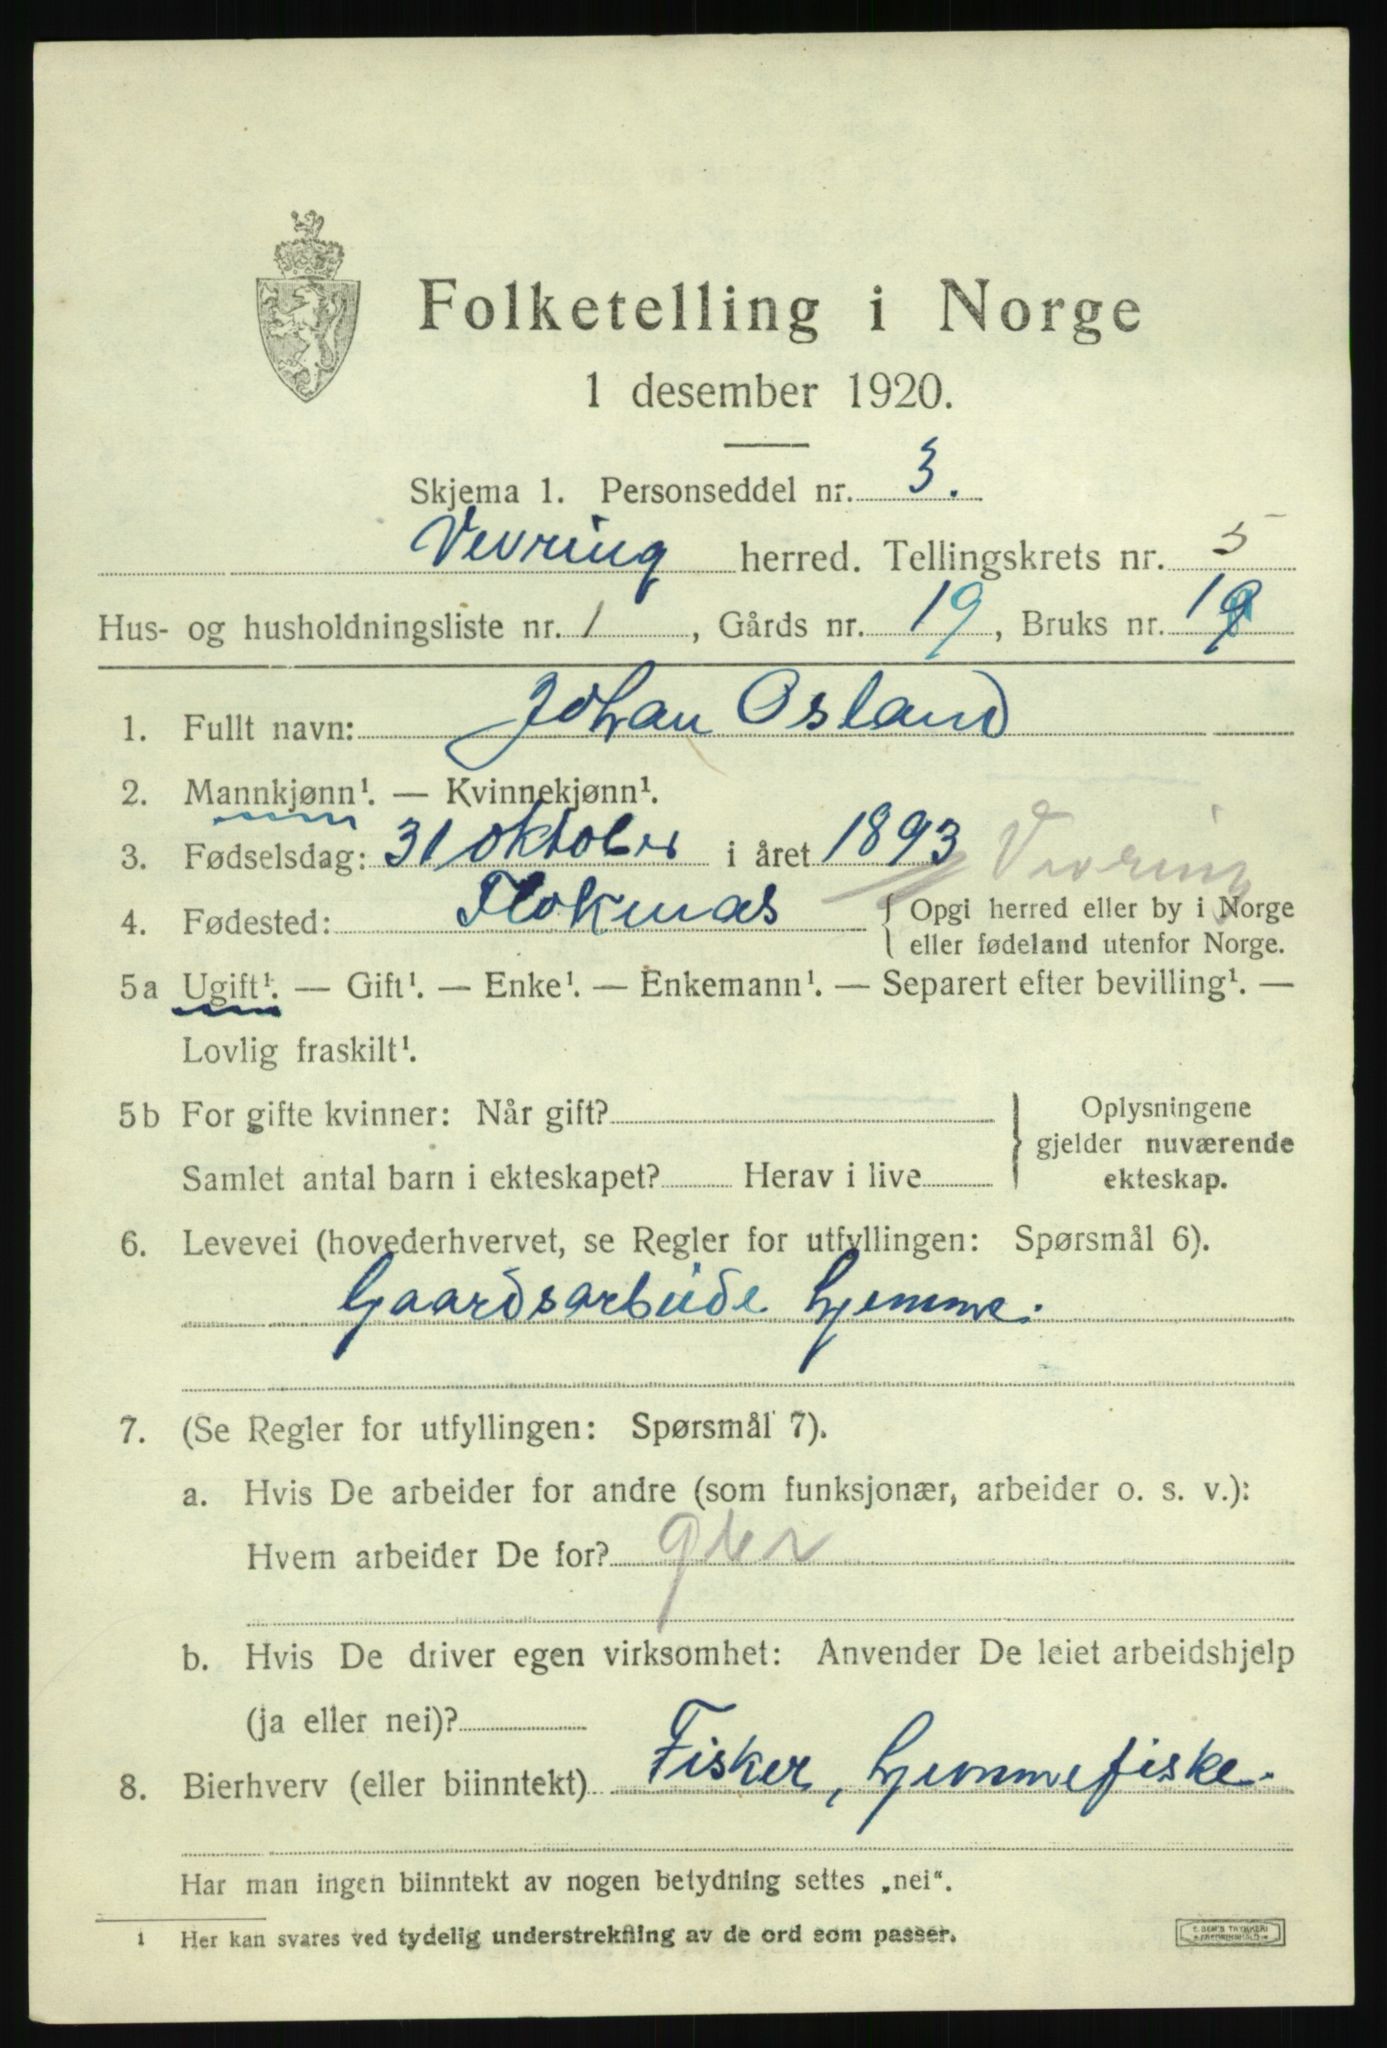 Folketelling i Norge
1 desember 1920.
Skjema 1. Personseddel nr. 3.
Vevring herred. Tellingskrets nr. 5
Hus- og husholdningsliste nr. 1, Gårds nr. 19, Bruks nr. 19
1. Fullt navn: Johan Osland
2. Mannkjønn¹. — Kvinnekjønn¹.
3. Fødselsdag: 31 oktober i året 1893 Vevring
4. Fødested: Flokenæs { Opgi herred eller by i Norge
eller fødeland utenfor Norge.
5a Ugift¹. — Gift¹. — Enke¹. — Enkemann¹. — Separert efter bevilling¹. —
Lovlig fraskilt¹.
5b For gifte kvinner: Når gift? } Oplysningene
gjelder nuværende
Samlet antal barn i ekteskapet? Herav i live ekteskap.
6. Levevei (hovederhvervet, se Regler for utfyllingen: Spørsmål 6).
Gaardsarbeide hjemme.
7. (Se Regler for utfyllingen: Spørsmål 7).
a. Hvis De arbeider for andre (som funksjonær, arbeider o. s. v.):
Hvem arbeider De for?
b. Hvis De driver egen virksomhet: Anvender De leiet arbeidshjelp
(ja eller nei)?
8. Bierhverv (eller biinntekt) Fisker, hjemmefiske.
Har man ingen biinntekt av nogen betydning settes „nei“.
1 Her kan svares ved tydelig understrekning av de ord som passer.